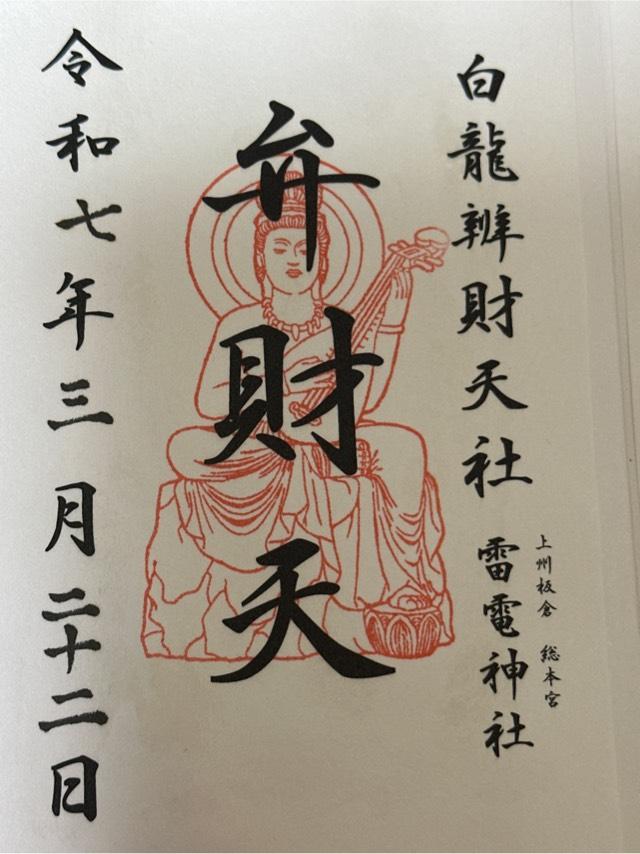 白龍辨財天社
上州板倉 総本宮
雷電神社
弁財天
令和七年三月二十二日